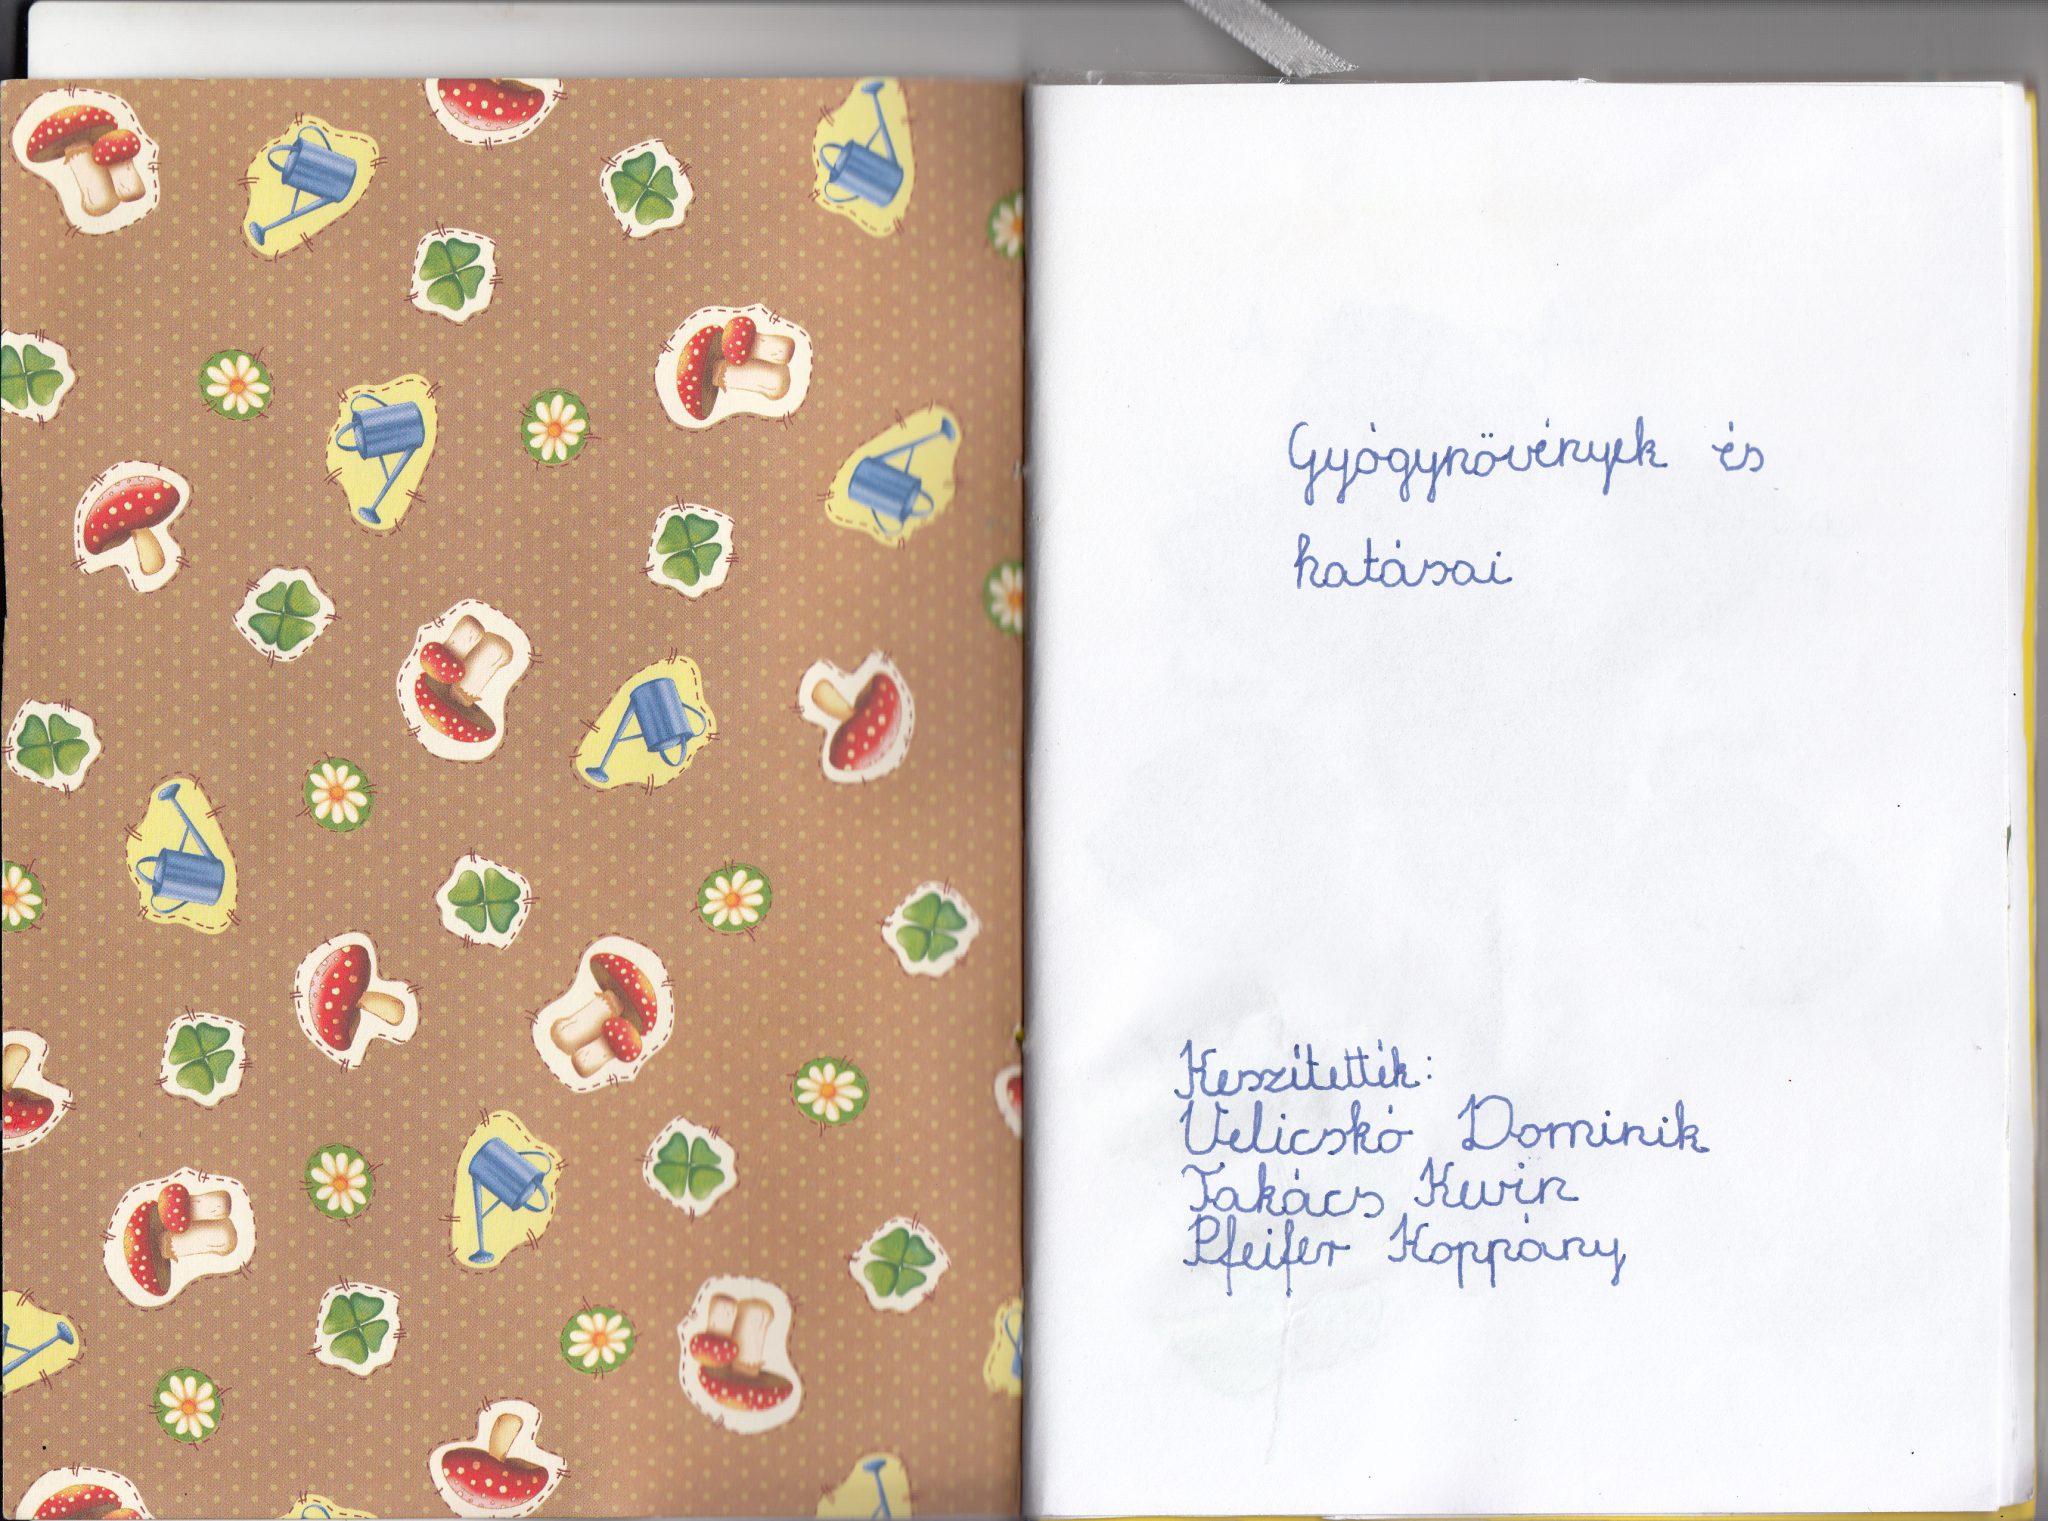 Gyógynövények és
hatásai
Készítették:
Velicskó Dominik
Takács Kevin
Pfeifer Koppány